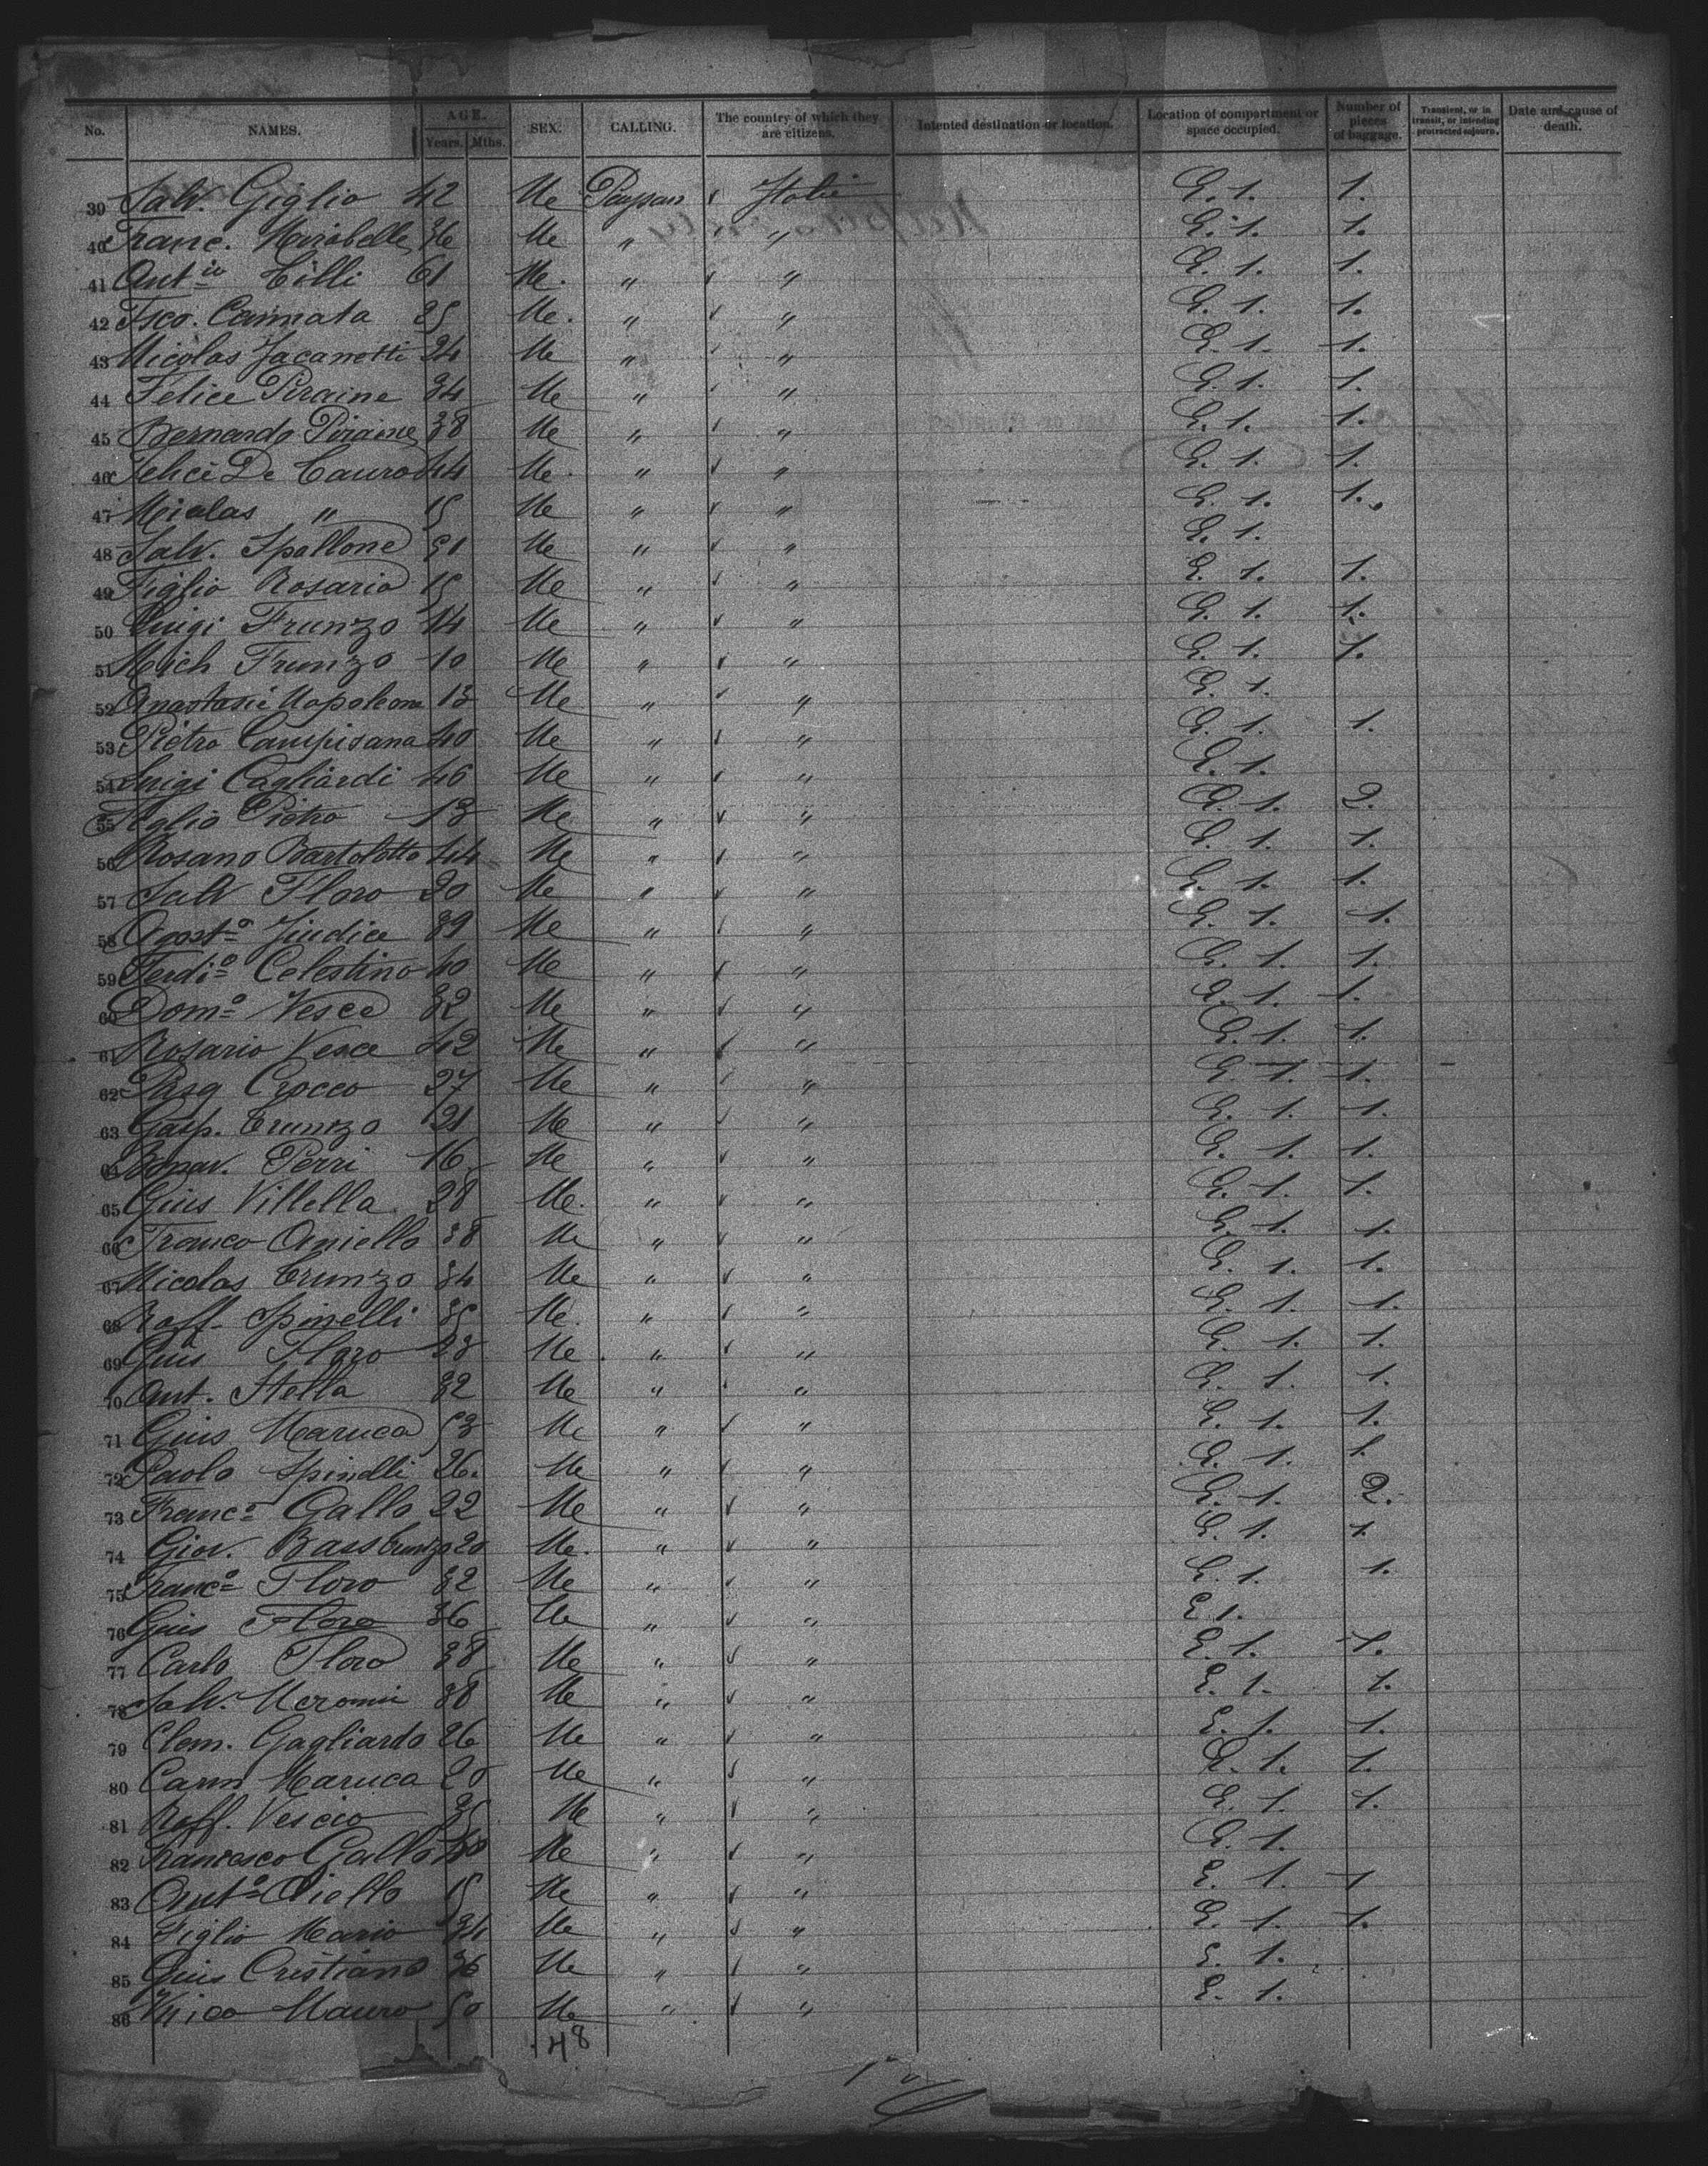 No. NAMES. AGE. Years. Mths. SEX. CALLING. The country of which they are citizens. Intended destination or location. Location of compartment or space occupied. Number of pieces of baggage. Transient, or in transit, or intending protracted sojourn. Date and cause of death.
39 Salv. Giglio 42 Me Paysan Italie E. 1. 1.
40 Franc. Mirabelle 36 Me " " E. 1. 1.
41 Antio Cilli 61 Me. " " E. 1. 1.
42 Fsco. Cannata 25 Me. " " E. 1. 1.
43 Nicolas Jacanetti 24 Me " " E. 1. 1.
44 Felice Piraine 34 Me " " E. 1. 1.
45 Bernardo Piraine 38 Me " " E. 1. 1.
46 Felice De Cauro 44 Me. " " E. 1. 1.
47 Nicolas " 15 Me " " E. 1. 1.
48 Salv. Spallone 51 Me " " E. 1.
49 Figlio Rosario 15 Me " " E. 1. 1.
50 Luigi Frunzo 14 Me " " E. 1. 1.
51 Mich Frunzo 10 Me " " E. 1. 1.
52 Anastasie Napoleone 13 Me " " E. 1.
53 Pietro Campisana 40 Me " " E. 1. 1.
54 Luigi Cagliardi 46 Me " " E. 1.
55 Figlio Pietro 13 Me " " E. 1. 2.
56 Rosano Bartolotto 44 Me " " E. 1. 1.
57 Salv Floro 20 Me " " E. 1. 1.
58 Agosto Judice 39 Me " " E. 1. 1.
59 Ferdio Celestino 40 Me " " E. 1. 1.
60 Domo Vesce 32 Me " " E. 1. 1.
61 Rosario Vesce 42 Me " " E. 1. 1.
62 Pasq Crocco 27 Me " " E. 1. 1.
63 Gasp. Trunzo 21 Me " " E. 1. 1.
64 Perri 16 Me " " E. 1. 1.
65 Gius Villella 28 Me. " " E. 1. 1.
66 Franco Aniello 38 Me " " E. 1. 1.
67 Nicolas Trunzo 34 Me " " E. 1. 1.
68 Raff. Spinelli 35 Me. " " E. 1. 1.
69 Gius Floro 23 Me. " " E. 1. 1.
70 Ant. Stella 32 Me " " E. 1. 1.
71 Gius Maruca 53 Me " " E. 1. 1.
72 Paolo Spinelli 26. Me " " E. 1. 1.
73 Franco Gallo 22 Me " " E. 1. 2.
74 Giov. Bass Trunzo 20 Me. " " E. 1. 1.
75 Franco Floro 32 Me " " E. 1. 1.
76 Gius Floro 36 Me " " E 1.
77 Carlo Floro 38 Me " " E. 1. 1.
78 Salv. 38 Me " " E. 1. 1.
79 Clem. Gagliardo 26 Me " " E. 1. 1.
80 Carm Maruca 20 Me " " E. 1. 1.
81 Raff. Vescio 35 Me " " E. 1. 1.
82 Francesco Gallo 40 Me " " E. 1.
83 Anto Aiello 15 Me " " E. 1. 1
84 Figlio Mario 34 Me " " E. 1. 1.
85 Gius Cristiano 36 Me " " E. 1.
86 Mauro 50 Me " " E. 1.
48